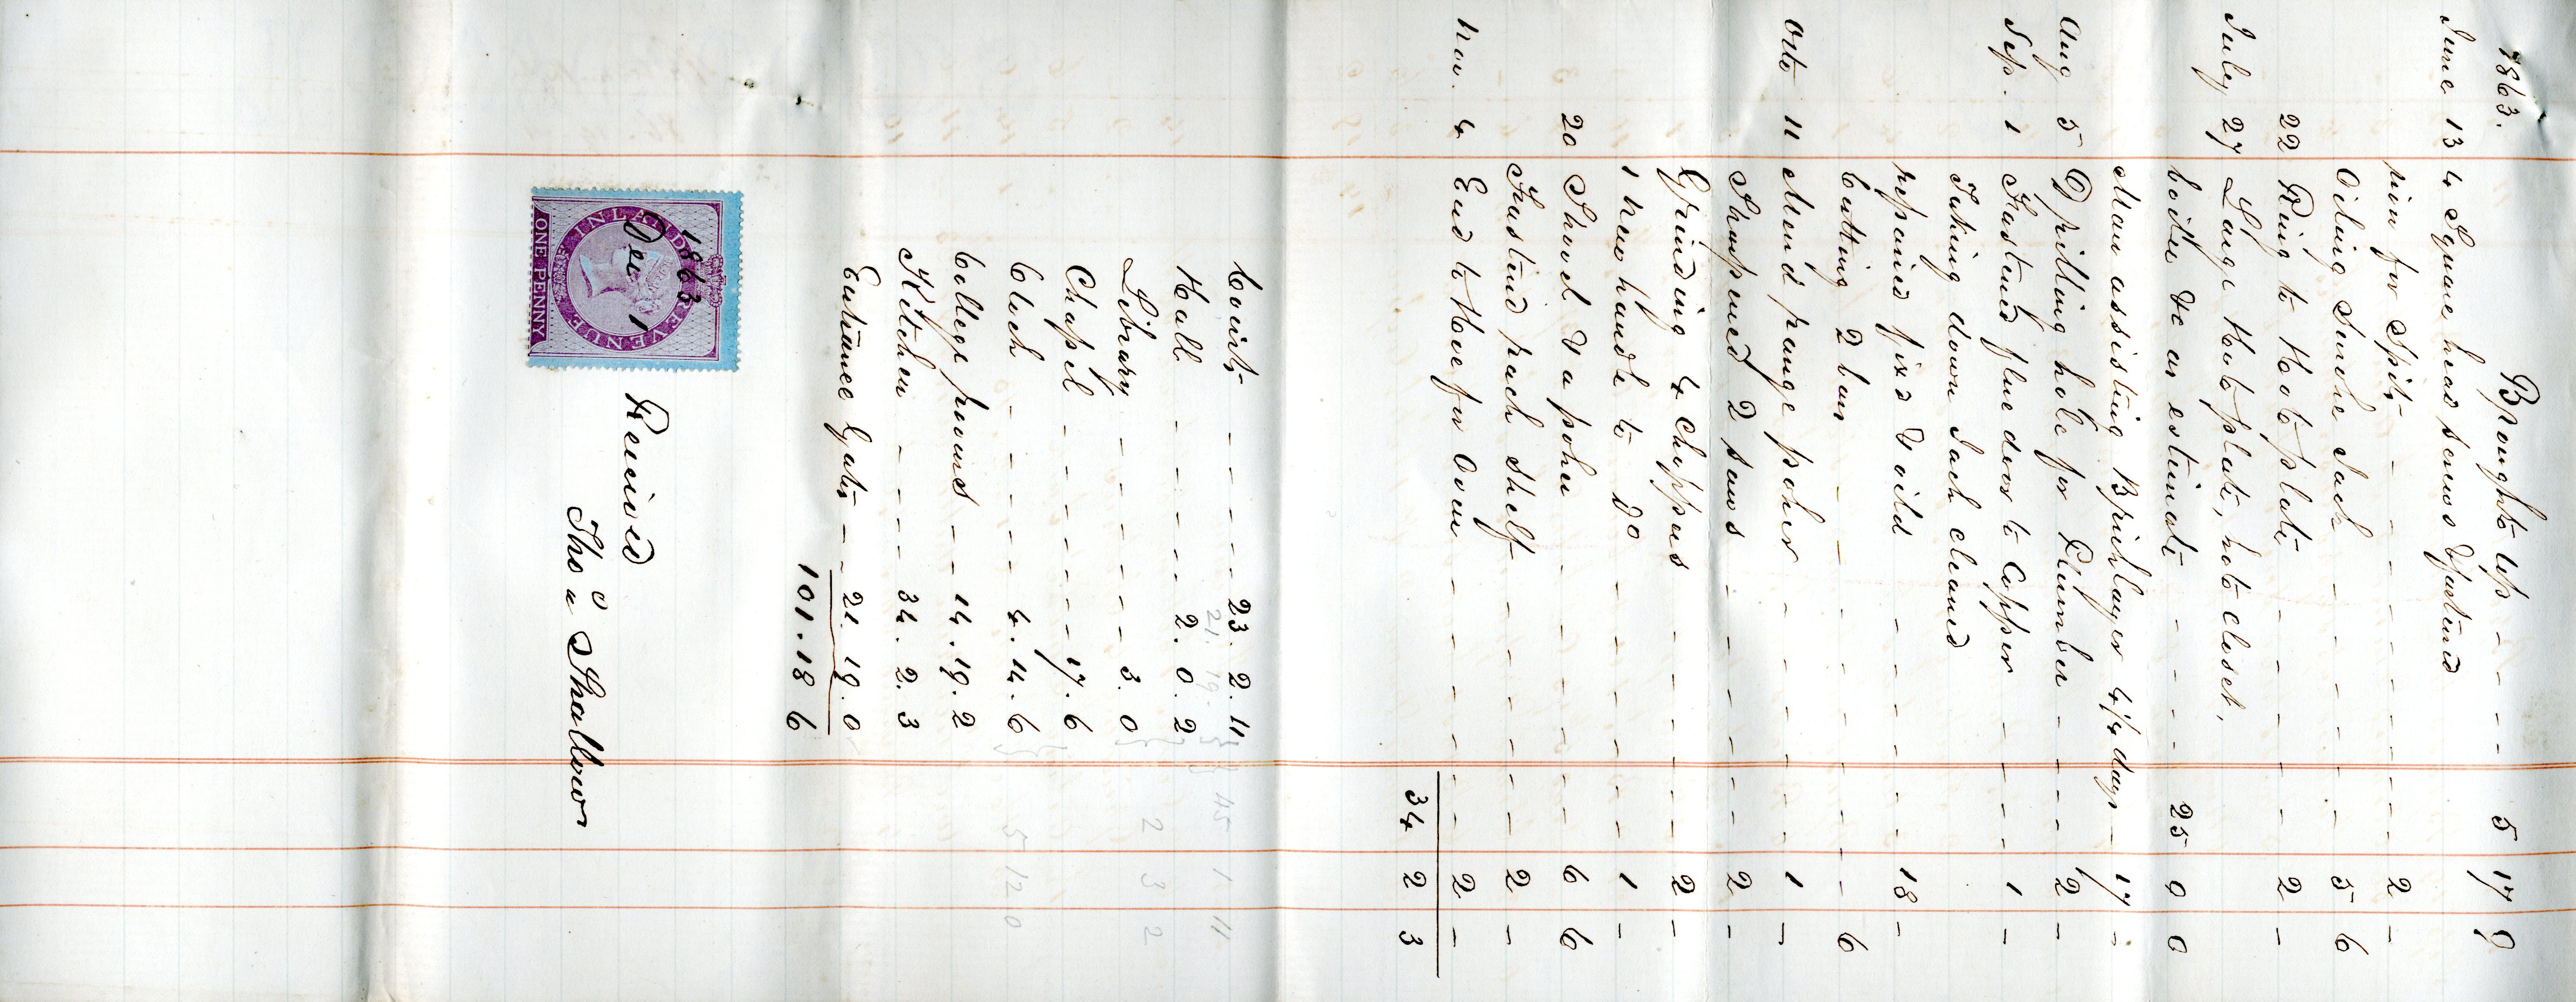 1863. Brought up - - - - 5 17 9
June 13 4 Square head screws & fastend
pin for Spit - - - - - 2 -
Oiling Smoke Jack - - - - 5 6
22 Ring to Hot plate - - - - 2 -
July 27 Large Hot plate, hot closet,
boiler &c as estimate - - - - 25 0 0
Man assisting Bricklayer 4 1/4 days - 17 -
Aug 5 Drilling hole for Plumber - - - 2 -
Sep. 1 Fastend flue door to Copper - - - 1 -
Taking down Jack cleand
repaired fixd & oild - - - - 18 -
Cutting 2 bars - - - - - 6
Octo 11 Mend range poker - - - - 1 -
Sharpened 2 saws - - - - 2 -
Grinding 4 choppers - - - - 2 -
1 new handle to do - - - - 1 -
20 Shovel & a poker - - - - 6 6
Fastend rack Shelf - - - - 2 -
Nov. 4 End to Hoe for Oven - - - - 2 -
34 2 3
Courts - - - - 23. 2. 11
21. 19. 45 1 11
Hall - - - - 2. 0. 2
Library - - - - 3. 0 2 3 2
Chapel - - - - 17. 6
Clock - - - - 4. 14. 6 5 12 0
College rooms - - 14. 19. 2
Kitchen - - - - 34. 2. 3
Entrance Gates - - 21. 19. 0
101. 18 6
INLAND REVENUE
ONE PENNY
1863
Dec 1
Received
Thos Shallow